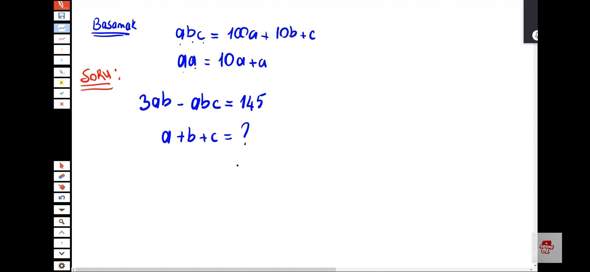 Basamak
abc = 100a + 10b + c
aa = 10a + a
SORU:
3ab - abc = 145
a + b + c = ?